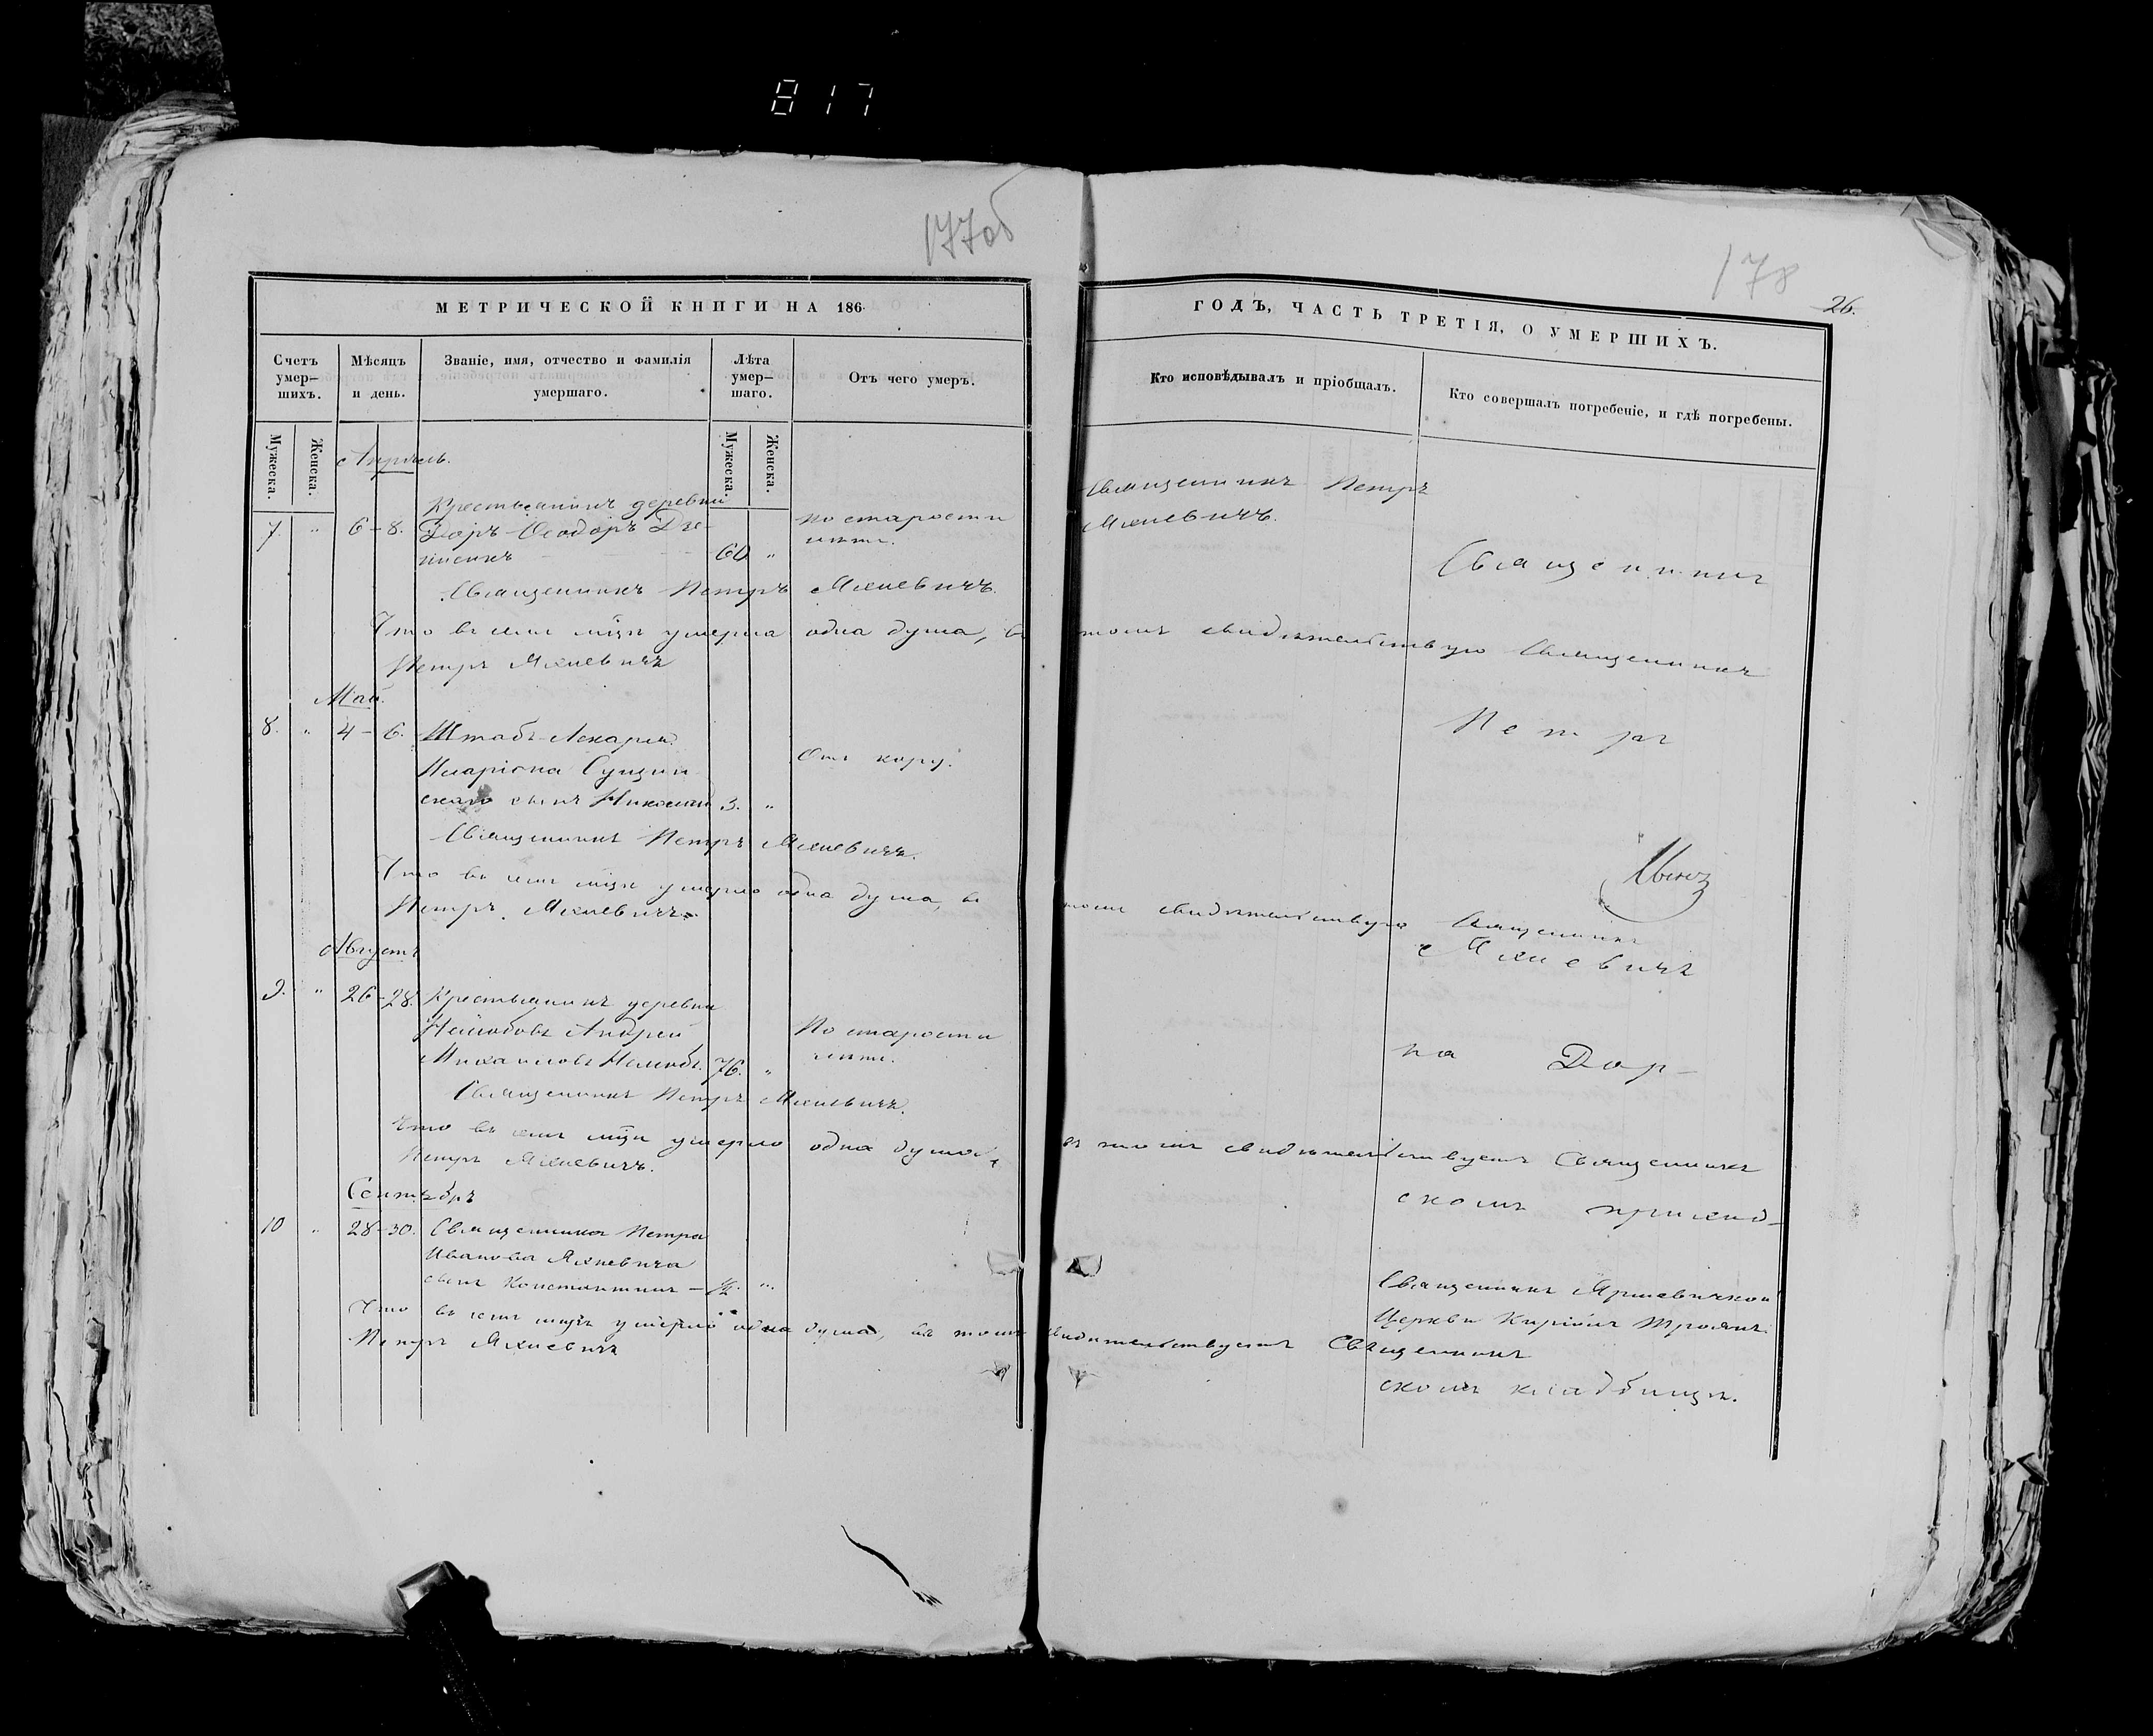 817
177об
178
26.
МЕТРИЧЕСКОЙ КНИГИ НА 186
ГОДЪ, ЧАСТЬ ТРЕТІЯ, О УМЕРШИХЪ.
Счетъ умер-шихъ.
Мѣсяцъ и день.
Званіе, имя, отчество и фамилія умершаго.
Лѣта умер-шаго.
Отъ чего умеръ.
Кто исповѣдывалъ и пріобщалъ.
Кто совершалъ погребеніе, и гдѣ погребены.
Мужеска.
Женска.
Мужеска.
Женска.
Апрѣль.
Крестьянинъ деревни
7. " 6-8. Доръ Ѳеодоръ
60 "
По старости
лѣтъ.
Священникъ Петръ
Яхневичъ.
Священникъ
Священникъ Петръ Яхневичъ.
Что въ семъ мцѣ умерла одна душа, въ томъ свидѣтельствую Священникъ
Петръ Яхневичъ
Май.
8. " 4-6. Штабъ-Лекаря
Иларіона
скаго сынъ Николай 3. "
Отъ кору.
Петръ
Священникъ Петръ Яхневичъ.
Что въ семъ мцѣ умерло одна душа, въ томъ свидѣтельствую Священникъ
Петръ Яхневичъ.
Яхневичъ
Августъ
9. " 26-28. Крестьянинъ деревни
Андрей
Михаиловъ 76. "
По старости
лѣтъ.
на Дор-
Священникъ Петръ Яхневичъ.
Что въ семъ мцѣ умерло одна душа, въ томъ свидѣтельствуетъ Священникъ
Петръ Яхневичъ.
скомъ приход-
Сентябрь
10 " 28-30. Священника Петра
Иванова Яхневича
сынъ Константинъ - ½. "
Священникъ
Церкви
Что въ семъ мцѣ умерло одна душа, въ томъ свидѣтельствуетъ Священникъ
Петръ Яхневичъ
скомъ кладбищѣ.